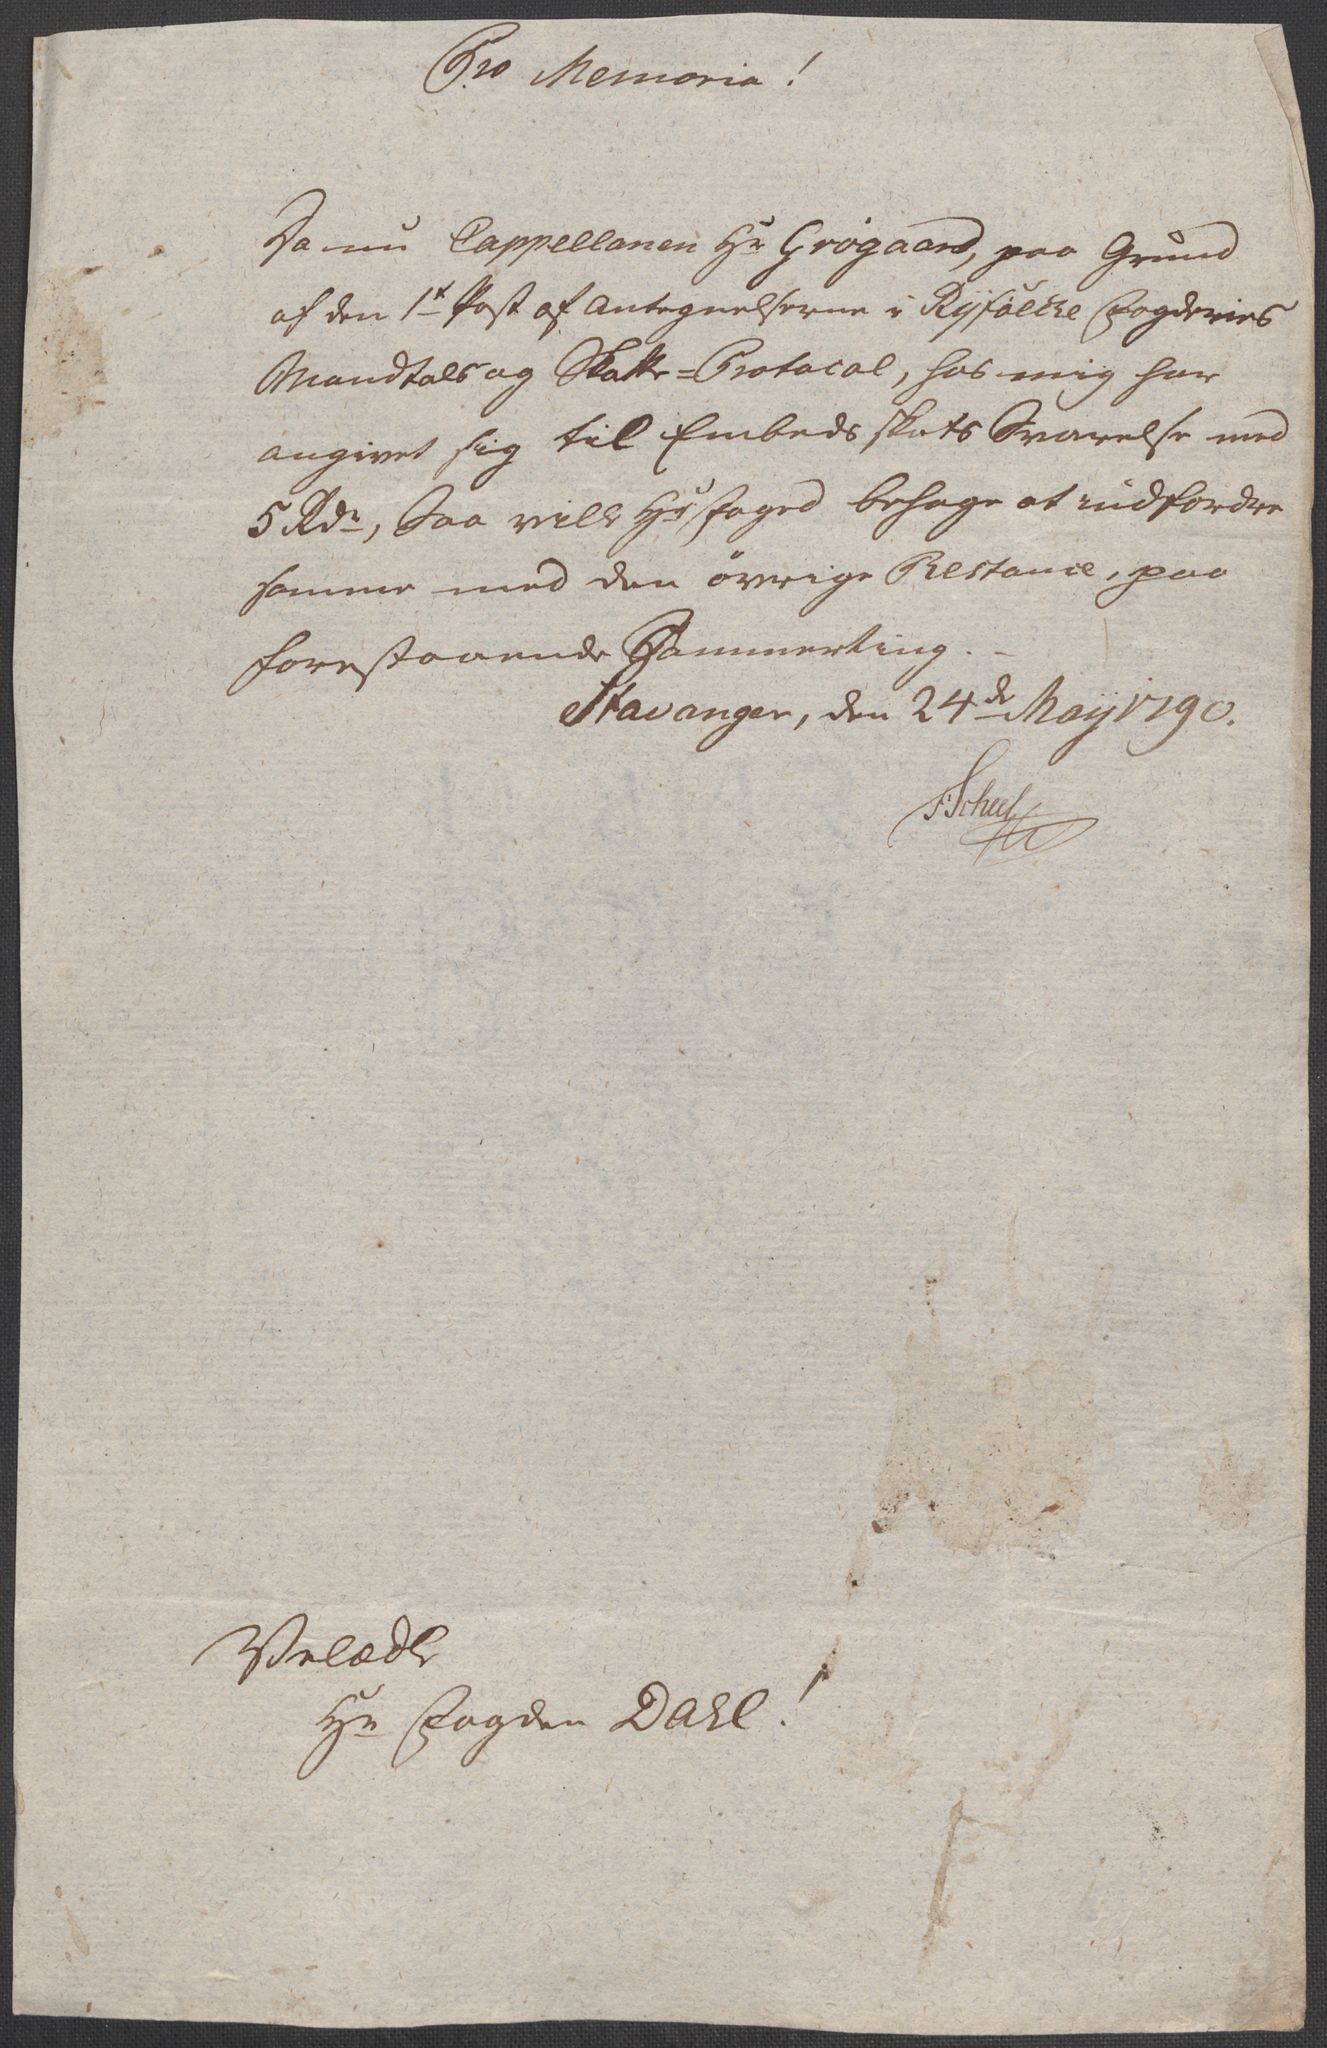 Pro Memoria!
Da nu Cappellanen Hr Grögaard, paa Grund
af den 1te Post af Antegnelserne i Ryfölke Fogderies
Mandtals og Skatte=Protocol, hos mig har
angivet sig til Embeds skats Svarelse med
5 Rdr, Saa ville Hr Foged behage at indfordre
samme med den övrige Restance, paa
forestaaende Sommerting.-
Stavanger, den 24de Maÿ 1790.
F: Scheel
Velædle
Hr Fogden Dahl!